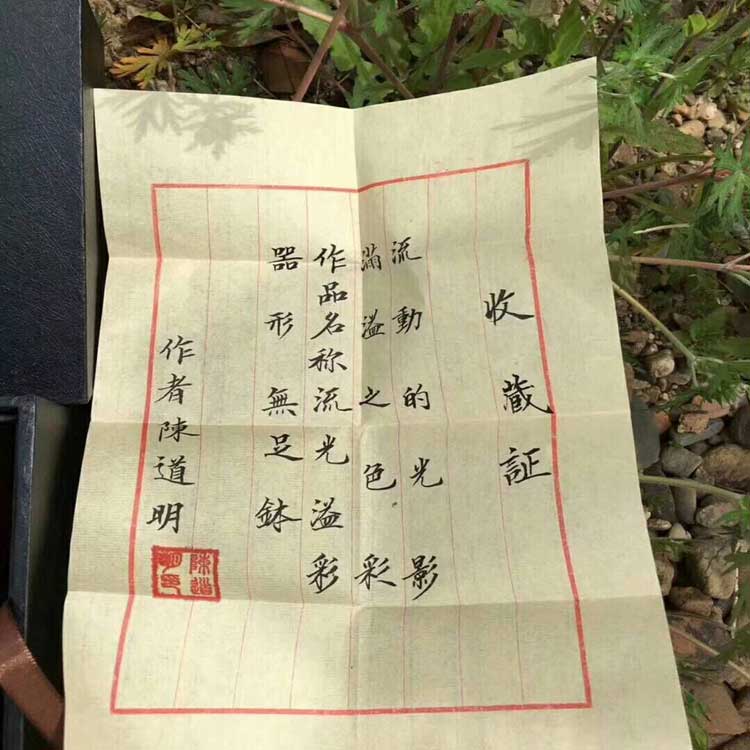 收藏証
流動的光影
滿溢之色彩
作品名称流光溢彩
器形無足鉢
作者陳道明
陳道明印